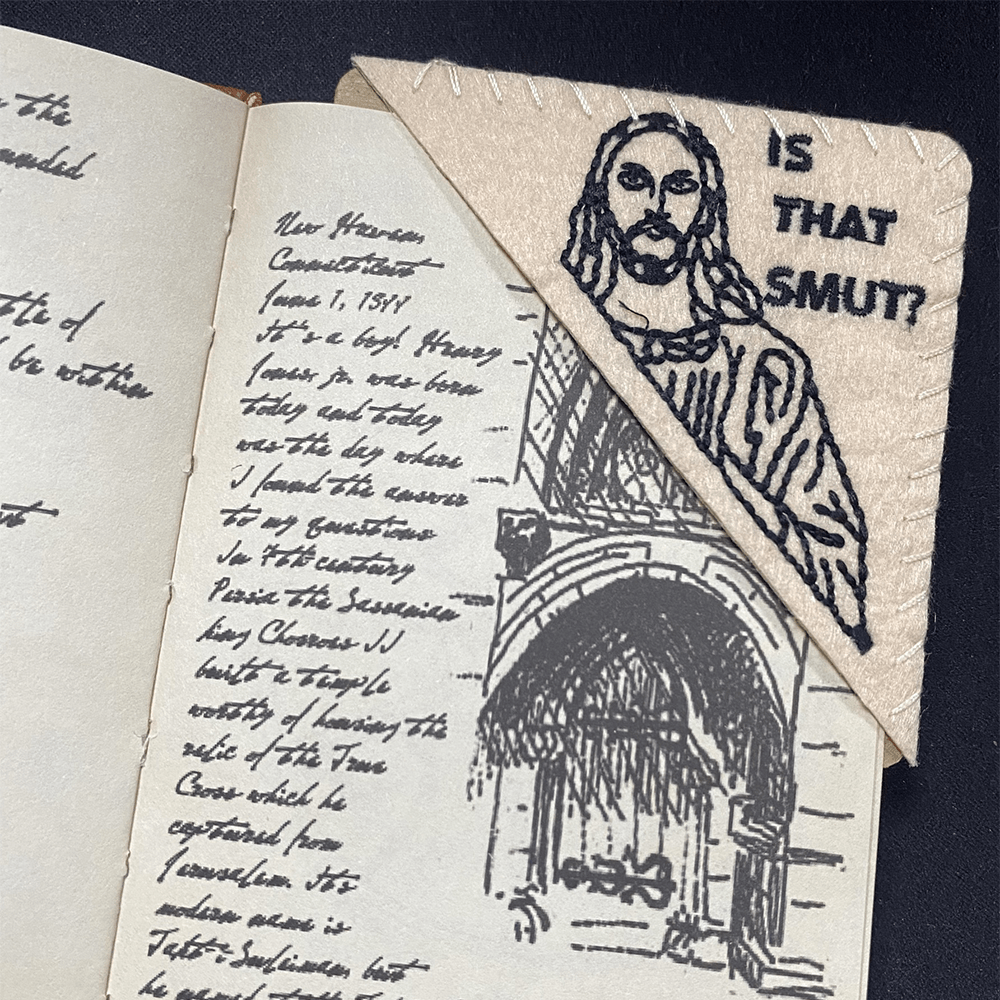 the
tle of
be within
New Haven
Connecticut
June 1,
It's a boy! Henry
Jones, jr. was born
today and today
was the day where
I found the answer
to my questions
In 7th century
Persia the Sassanian
king Chosroes II
built a temple
worthy of housing the
relic of the True
Cross which he
captured from
Jerusalem. It's
modern name is
Takt-i-Suleiman but
he
IS
THAT
SMUT?